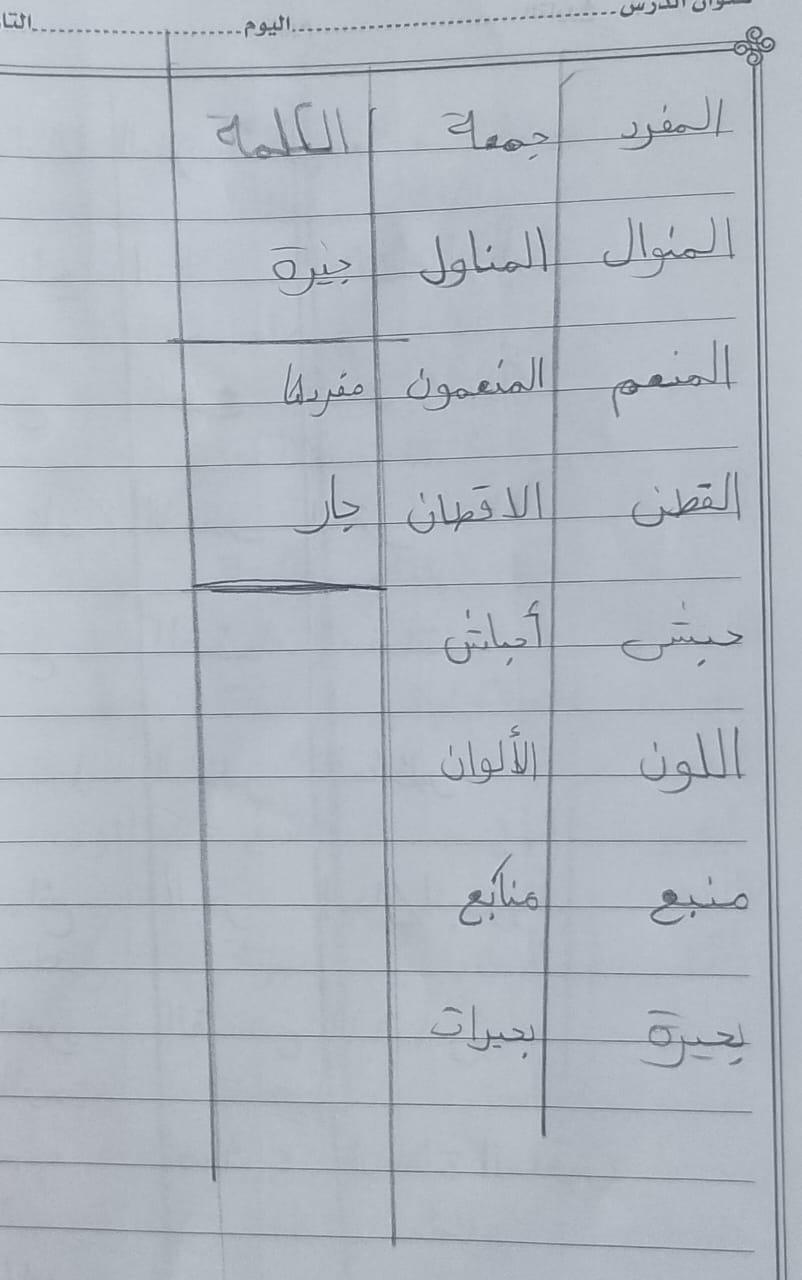 عنوان الدرس.......................... اليوم.......................... التا
المفرد جمعة الكلمة
المنوال المناول جيرة
المنعم المنعمون مفردها
القطن الاقطان جار
حبش أحباش
اللون الألوان
منبع منابع
بحيرة بحيرات